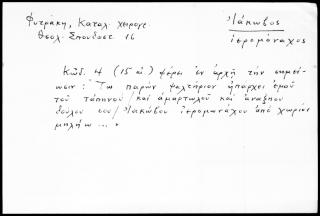 Φυτράκη, Καταλ. χειρογρ.
Θεολ. Σπουδαστ. 16
Ἰάκωβος
ἱερομόναχος
Κῶδ. 4 (15 αἰ.) φέρει ἐν ἀρχῇ τὴν σημεί-
ωσιν: Τω παρὸν ψαλτήριον ἡπάρχει ἐμοῦ
τοῦ τάπηνοῦ / καὶ ἁμαρτωλοῦ καὶ ἀναξηου
δούλου σου / Ἰακώβου ἱερομωνάχου ἀπὸ χωρίου
μηλήω ... »